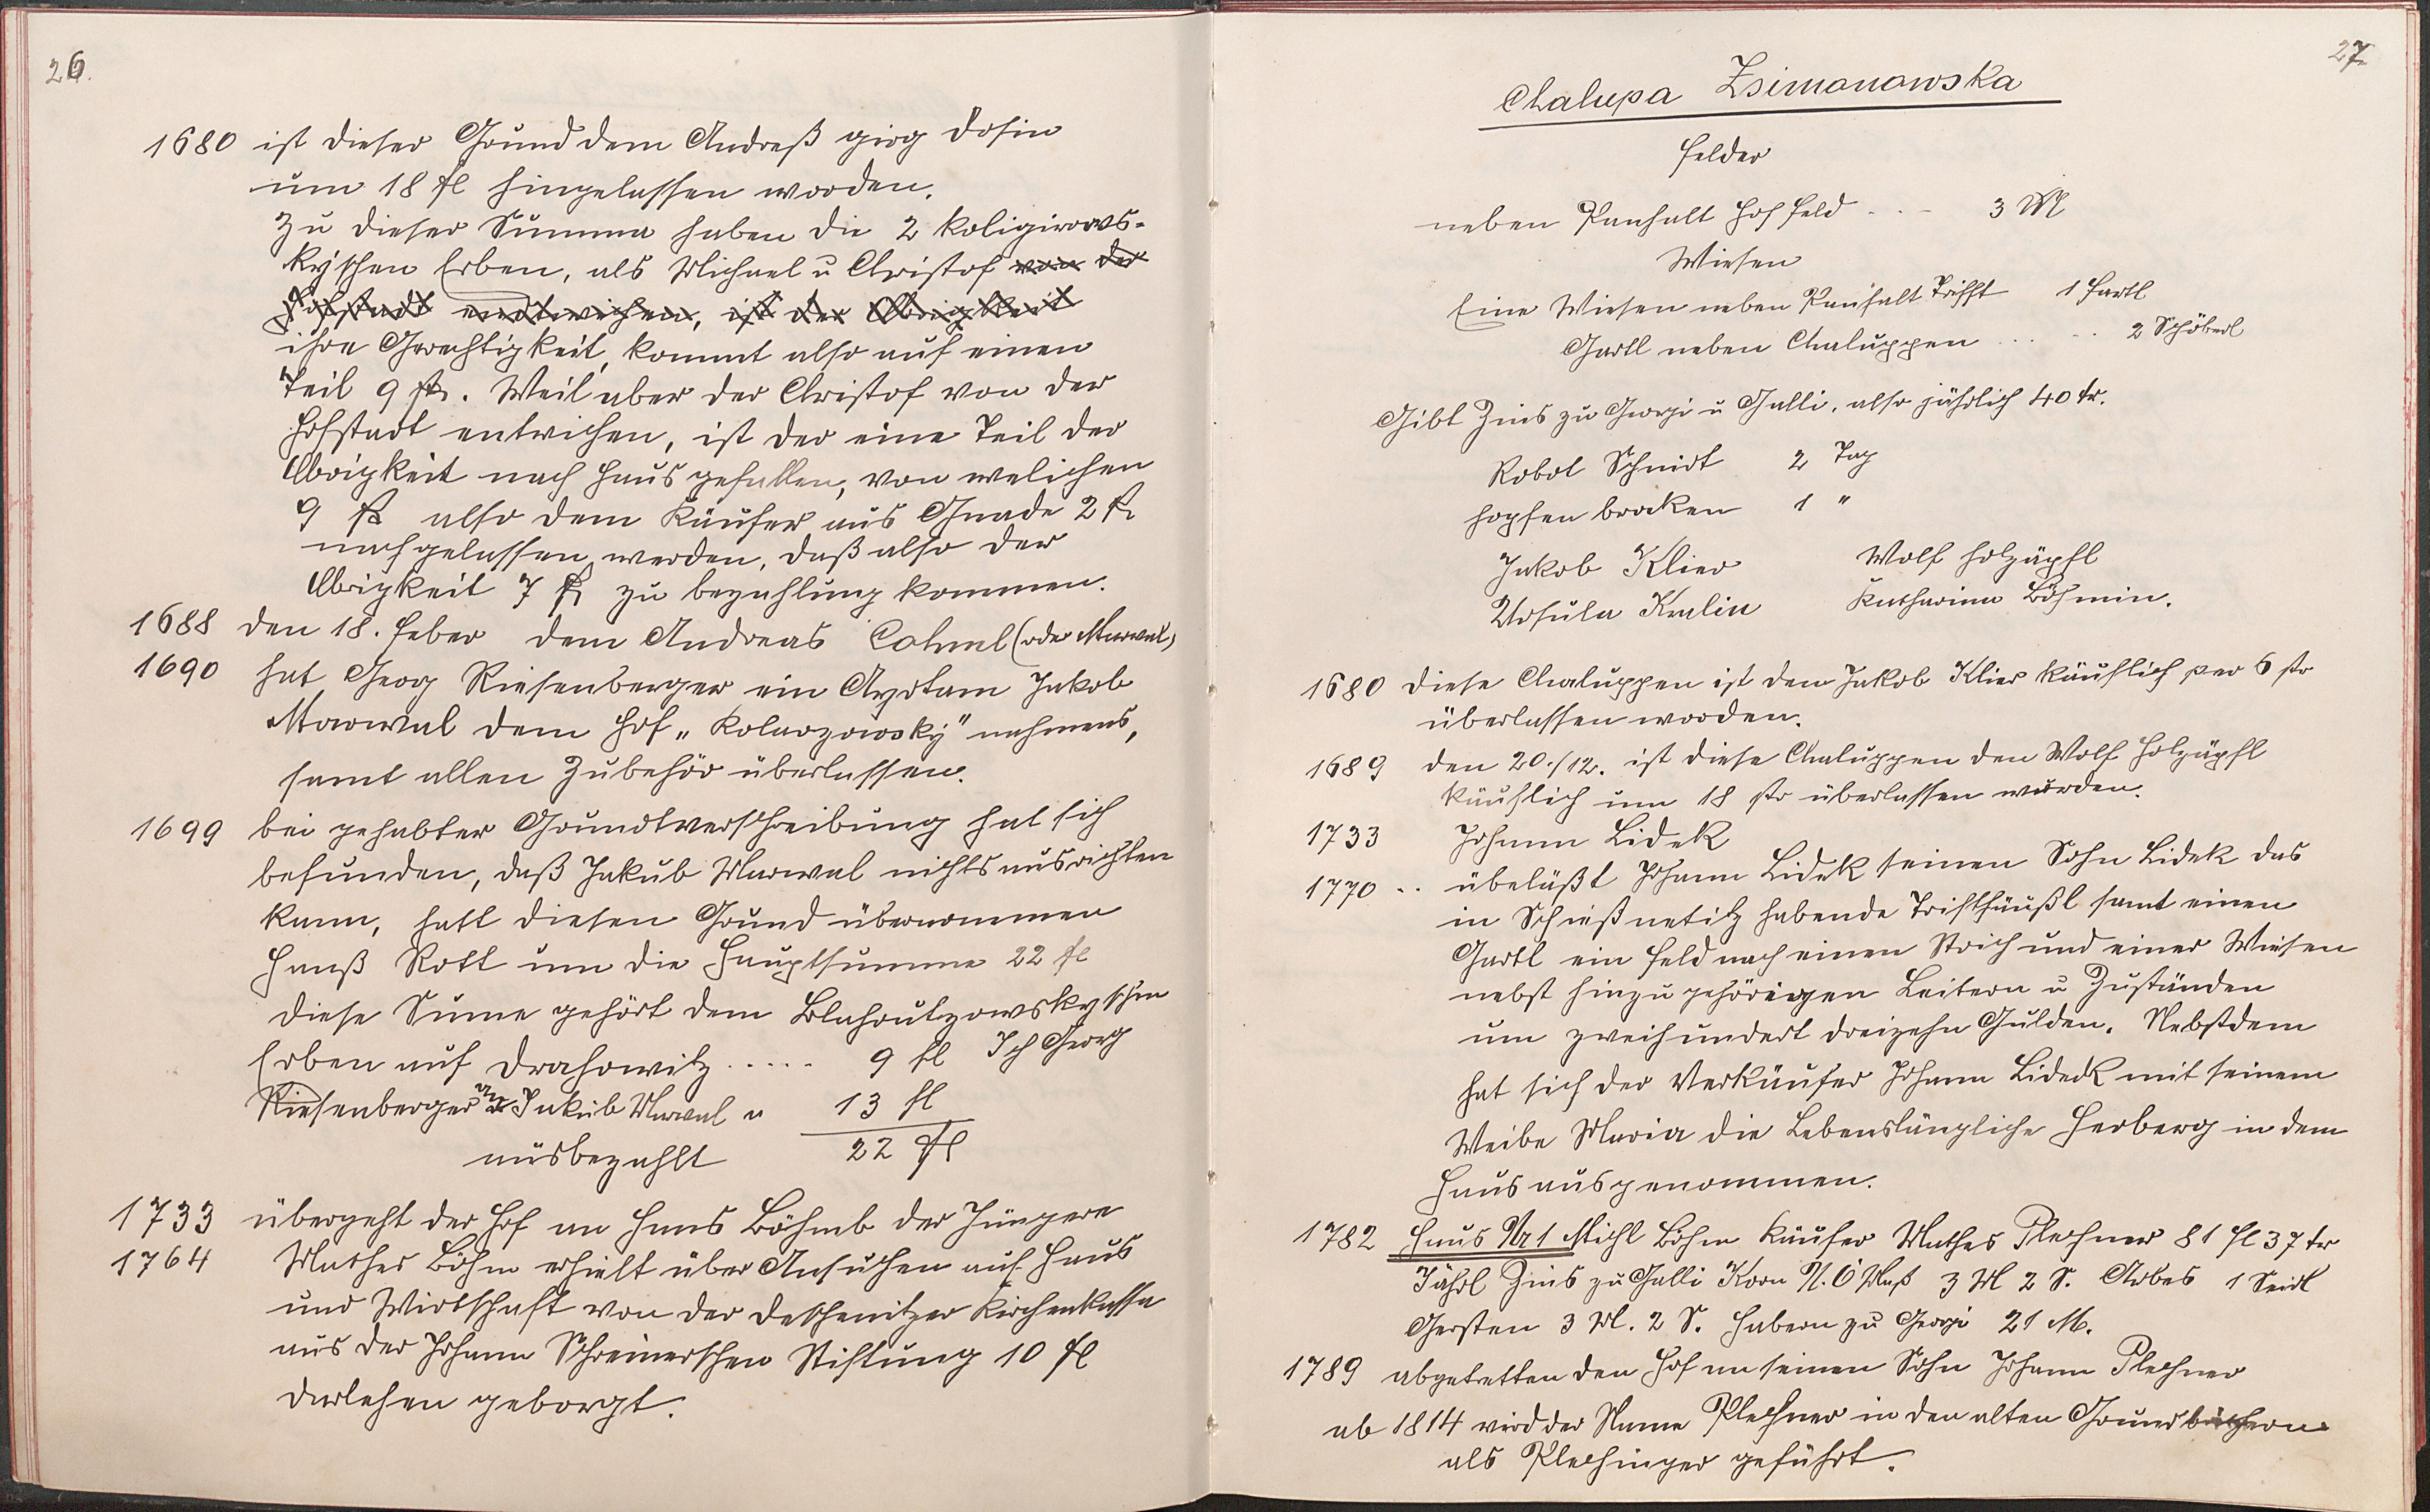 26.
1680 ist dieser Grund dem Andreß girg dosin
um 18 fl hingelassen worden.
Zu dieser Summa haben die 2 Koligirows-
kyschen Erben, als Michael u Christof von der
Hofstadt entwichen, ist der Obrigkeit
ihre Gerechtigkeit, kommt also auf einen
Teil 9 fl. Weil aber der Christof von der
Hofstadt entwichen, ist der eine Teil der
Obrigkeit nach Haus gefallen, von welichen
9 fl also dem Käufer aus Gnade 2 fl
nachgelassen werden, daß also der
Obrigkeit 7 fl zu bezahlung kommen.
1688 den 18. Feber dem Andreas (oder Marwal)
1690 hat Georg Riesenberger ein Aydtam Jakob
Marwal dem Hof „Kolarzowsky" nahmens,
samt allen Zubehör überlassen.
1699 bei gehabter Grundtverschreibung hat sich
befunden, daß Jakub Marwal nichts ausrichten
kann, hatt diesen Grund übernommen
Hanß Rott um die Hauptsumme 22 fl
diese Sume gehört dem Blahoutzowskyschen
Erben auf Drahowitz ..... 9 fl Ich Georg
Riesenberger an Jakub Marwal " 13 fl
ausbezahlt 22 fl
1733 übergeht der Hof an Hans Böhmb der Jüngere
1764 Mathes Böhm erhielt über Ansuchen auf Haus
und Wirtschaft von der Deschenitzer Kirchenkassa
aus der Johann Schreinerschen Stiftung 10 fl
darlehen geborgt.
27
Chalupa Zsimanowska
Felder
neben Panhalt Hoffeld . . - 3 M
Wiesen
Eine Wiesen neben Panhalt Trifft 1 Fartl
Gartl neben Chaluppen ... .. 2 Schöberl
Gibt Zins zu Georgi u Galli, also jährlich 40 kr.
Robot Schnidt 2 Tag
hopfen brocken 1 "
Jakob Klier Wolf Holzäpfl
Ursula Kralin Katharina Böhmin.
1680 diese Chaluppen ist dem Jakob Klier käuflich per 6 ßo
überlassen worden.
1689 den 20./12. ist diese Chaluppen den Wolf Holzäpfl
käuflich um 18 ßo überlassen wurden.
1733 Johann Lidek
1770 .. übeläßt Johann Lidek seinen Sohn Lidek das
in Schießnetitz habende Trifthäußl samt einen
Gartl ein Feld nach einen Strich und einer Wiesen
nebst hinzu gehörigen Leitern u Zuständen
um zweihundert dreizehn Gulden. Nebstdem
hat sich der Verkäufer Johann Lideck mit seinem
Weibe Maria die Lebenslängliche Herberg in dem
Haus ausgenommen.
1782 Haus Nr 1 Michl Böhm Käufer Mathes Plechner 81 fl 37 kr
Jährl Zins zu Galli Korn N. Ö Maß 3 M 2 S. Arbes 1 Seidl
Gersten 3 M. 2 S. Habern zu Georgi 21 M.
1789 abgetretten den Hof an seinen Sohn Johann Plechner
ab 1814 wird der Name Plechner in den alten Grundbüchern
als Plechinger geführt.